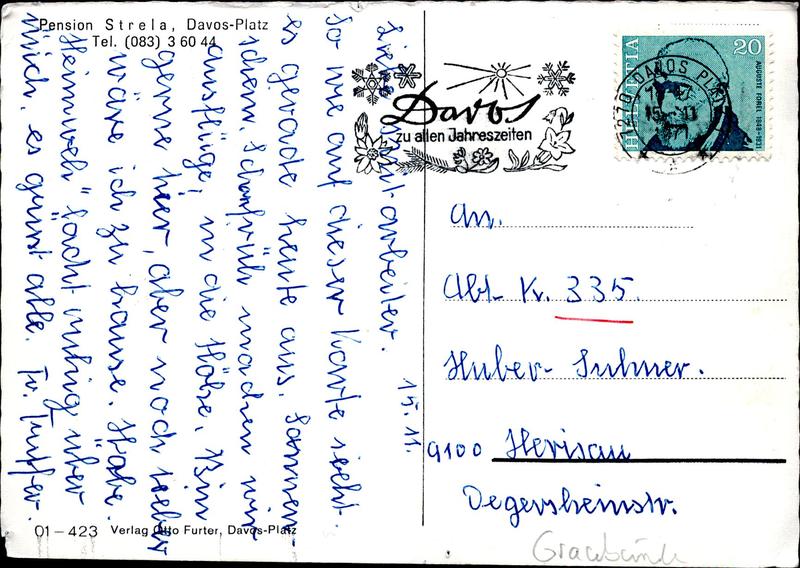 Pension Strela, Davos-Platz
Tel. (083) 3 60 44
15. 11.
Liebe Mitarbeiter.
So wie auf dieser Karte sieht
es gerade heute aus. Sonnen-
schein. Schon früh machen wir
Ausflüge, in die Höhe. Bin
gerne hier, aber noch lieber
wäre ich zu hause. Habe
Heimweh "lacht ruhig über
mich. es grüsst alle. Fr.
01-423 Verlag Otto Furter, Davos-Platz
Davos
zu allen Jahreszeiten
7270 DAVOS PLATZ
HELVETIA
20
AUGUSTE FOREL 1848-1931
An.
Abt- Kr. 335.
Huber- Suhner.
9100 Herisau
Degersheimstr.
Graubünde